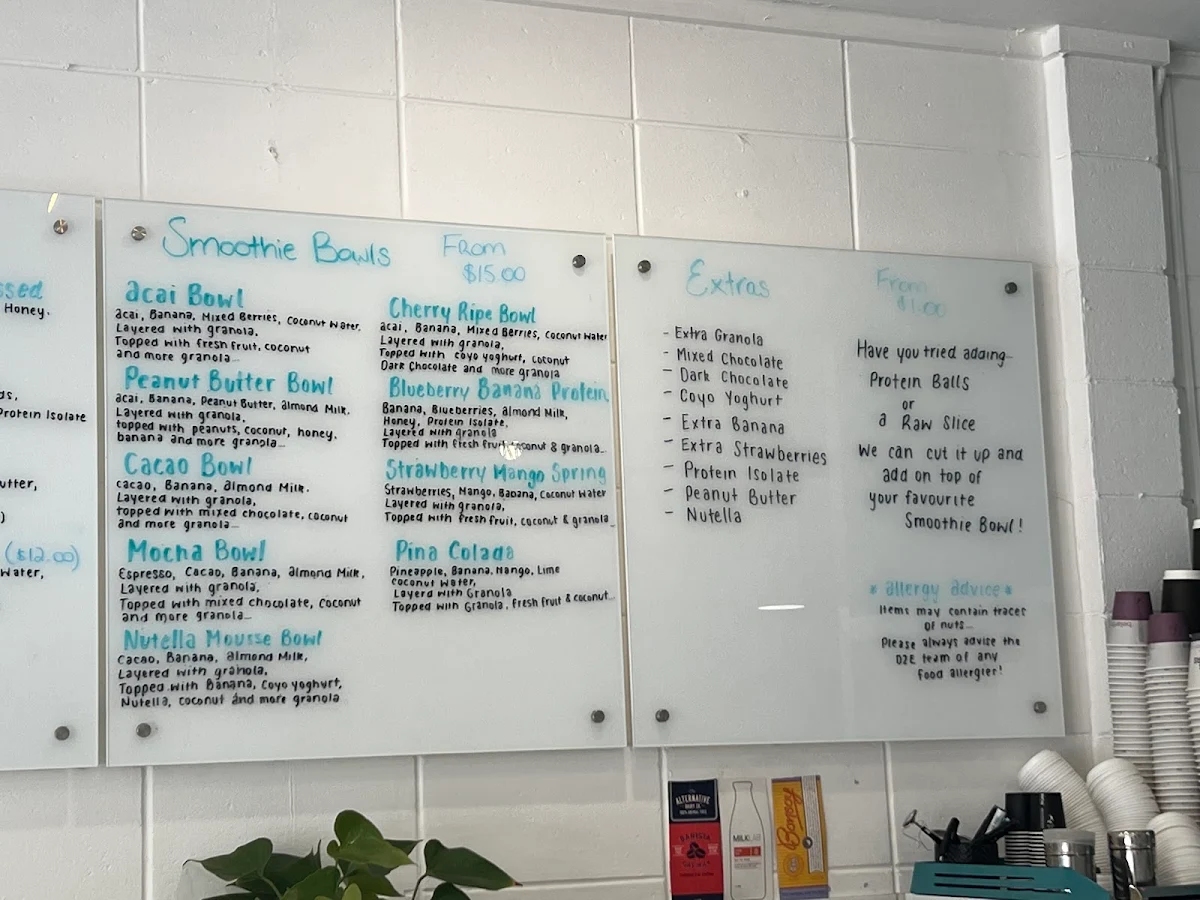 ssed
Honey.
Protein Isolate
utter,
($12.00)
Water,
Smoothie Bowls
From
$15.00
acai Bowl
acai, Banana, Mixed Berries, Coconut Water,
Layered with granola,
Topped with fresh fruit, coconut
and more granola...
Peanut Butter Bowl
acai, Banana, Peanut Butter, almond Milk,
Layered with granola,
topped with peanuts, coconut, honey,
banana and more granola...
Cacao Bowl
cacao, Banana, almond Milk,
Layered with granola,
topped with mixed chocolate, coconut
and more granola...
Mocha Bowl
Espresso, Cacao, Banana, almond Milk,
Layered with granola,
Topped with mixed chocolate, Coconut
and more granola...
Nutella Mousse Bowl
Cacao, Banana, almond Milk,
Layered with granola,
Topped with Banana, Coyo yoghurt,
Nutella, coconut and more granola
Cherry Ripe Bowl
acai, Banana, Mixed Berries, Coconut Water
Layered with granola,
Topped with coyo yoghurt, coconut
Dark Chocolate and more granola
Blueberry Banana Protein
Banana, Blueberries, almond Milk,
Honey, Protein Isolate,
Layered with granola
Topped with fresh fruit, coconut & granola...
Strawberry Mango Spring
Strawberries, Mango, Banana, Coconut Water
Layered with granola,
Topped with fresh fruit, coconut & granola...
Pina Colada
Pineapple, Banana, Mango, Lime
coconut Water,
Layerd with Granola
Topped with Granola, fresh fruit & coconut...
Extras
From
$1.00
- Extra Granola
- Mixed Chocolate
- Dark Chocolate
- Coyo Yoghurt
- Extra Banana
- Extra Strawberries
- Protein Isolate
- Peanut Butter
- Nutella
Have you tried adding...
Protein Balls
or
a Raw Slice
We can cut it up and
add on top of
your favourite
Smoothie Bowl!
* allergy advice *
Items may contain traces
of nuts...
Please always advise the
D2E team of any
food allergies!
ALTERNATIVE
DAIRY CO
BARISTA
MILKLAB
Bonsoy